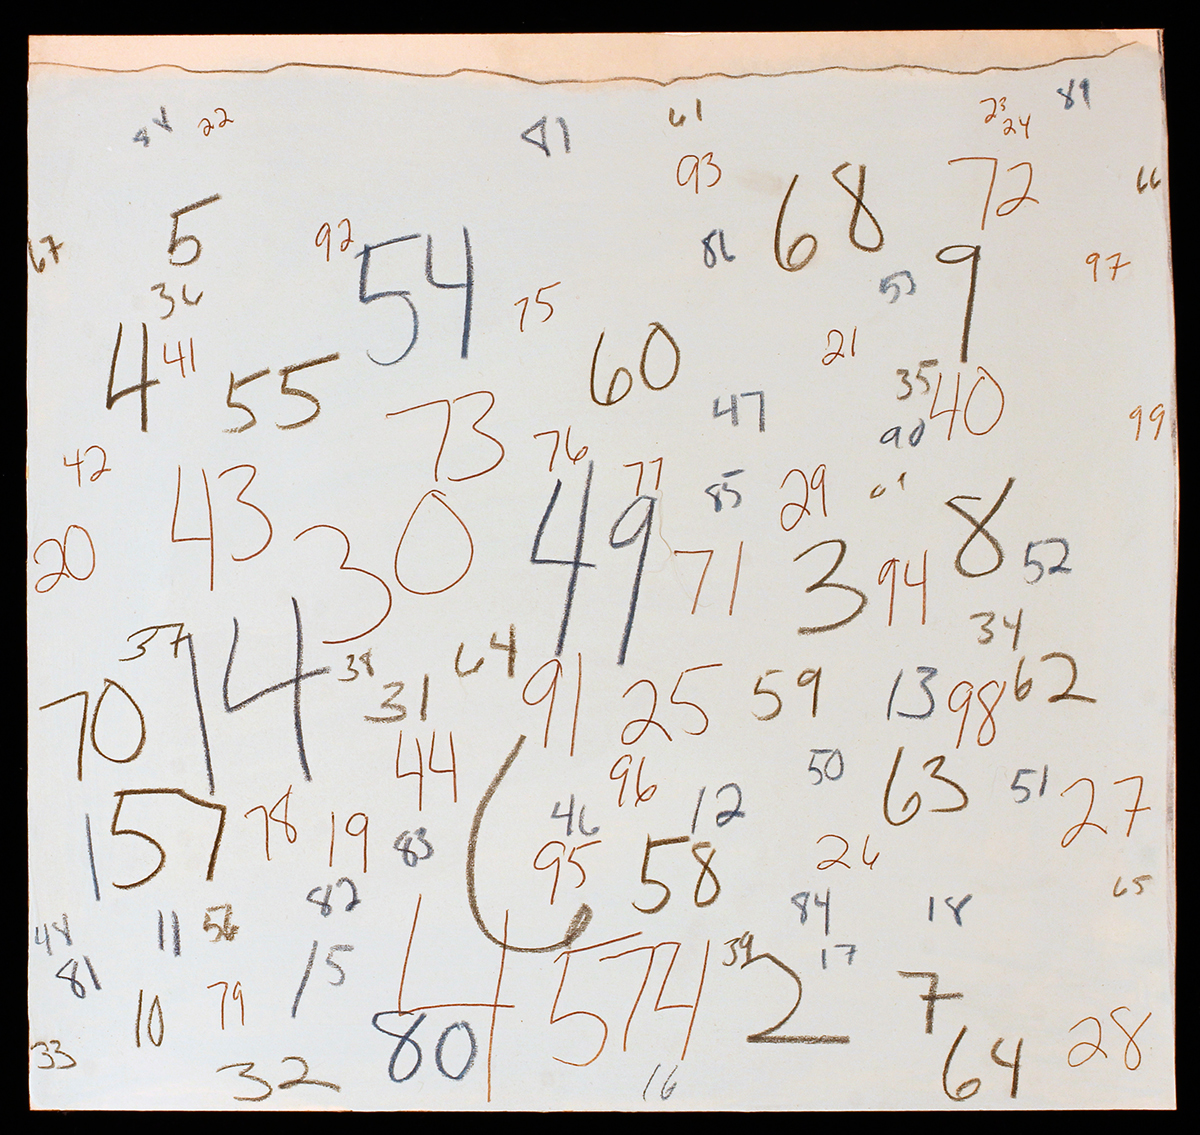 22
81
61
23
24
89
93
68
72
66
5
67
92
54
86
9
97
36
53
75
4
41
55
60
21
73
47
35
40
90
99
42
43
76
77
85
29
61
20
30
49
71
3
94
8
52
37
14
38
64
34
70
31
91
25
59
13
98
62
44
96
50
63
51
27
1
57
78
19
83
46
12
95
58
26
82
65
48
11
56
84
18
81
15
45
74
39
2
17
7
10
79
80
33
32
16
64
28
6